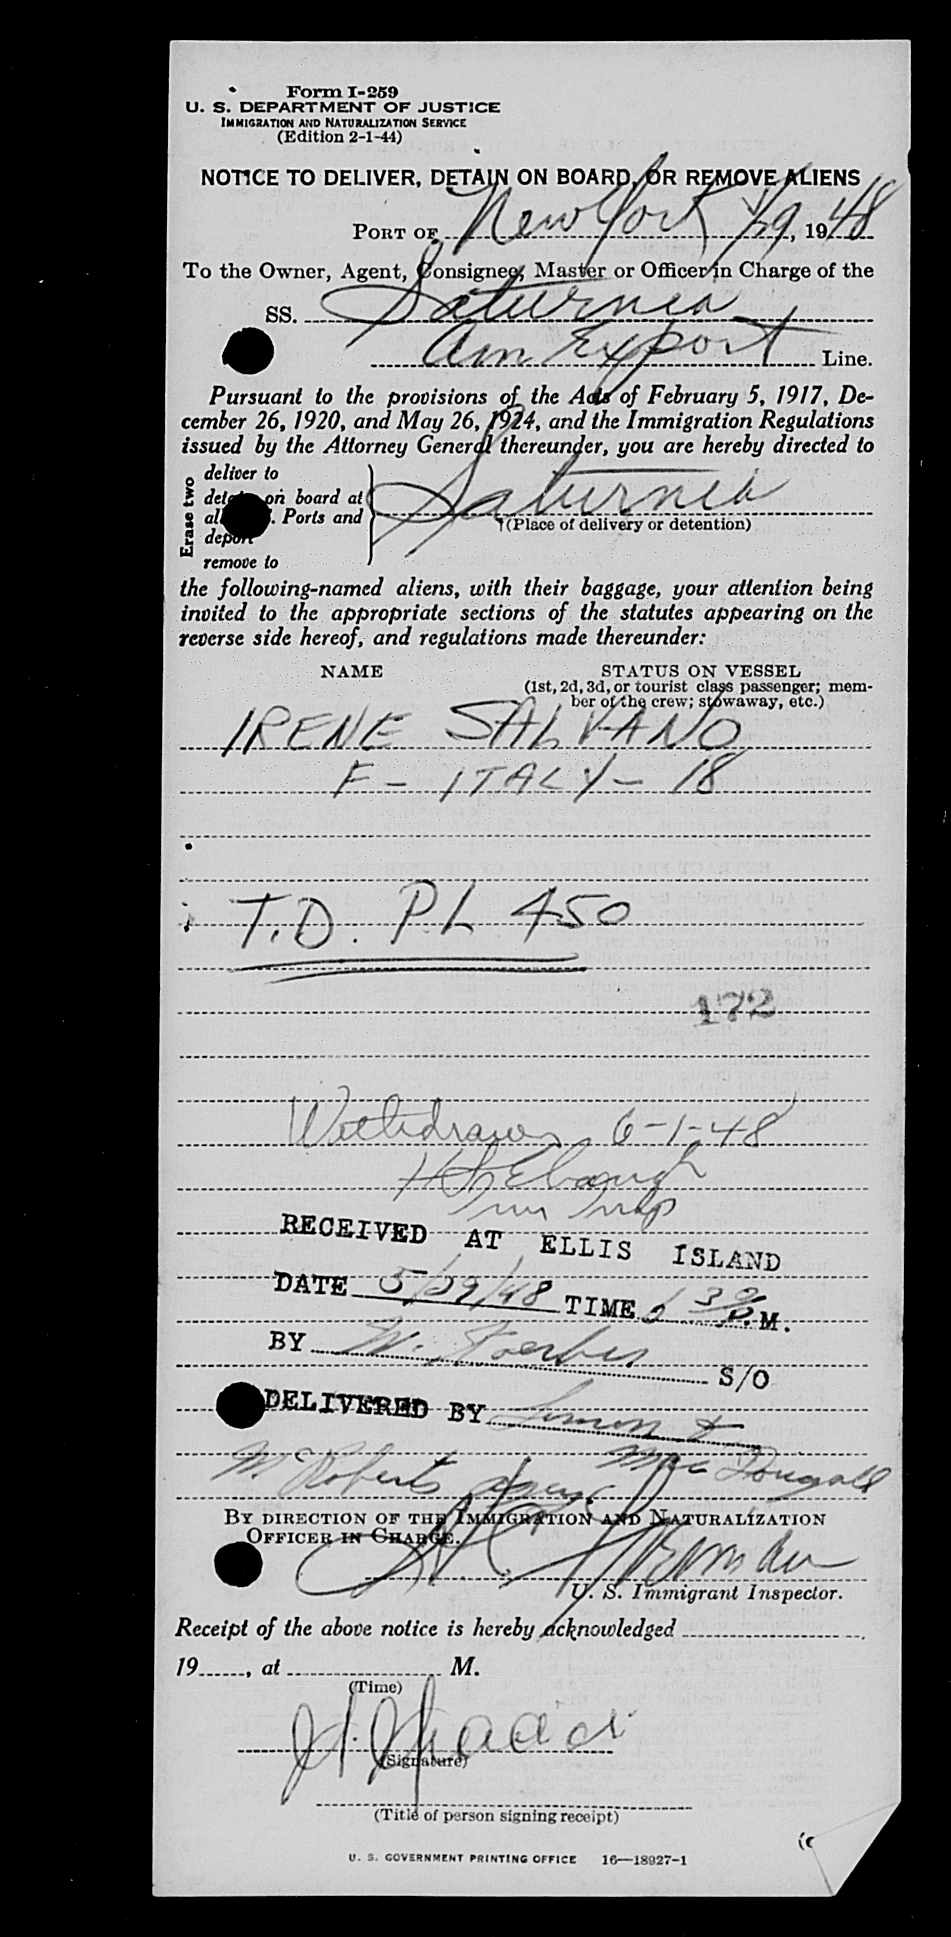 Form I-259
U. S. DEPARTMENT OF JUSTICE
IMMIGRATION AND NATURALIZATION SERVICE
(Edition 2-1-44)
NOTICE TO DELIVER, DETAIN ON BOARD, OR REMOVE ALIENS
PORT OF New York 5/29, 1948
To the Owner, Agent, Consignee, Master or Officer in Charge of the
SS. Saturnia
Am Export Line.
Pursuant to the provisions of the Acts of February 5, 1917, De-
cember 26, 1920, and May 26, 1924, and the Immigration Regulations
issued by the Attorney General thereunder, you are hereby directed to
Erase two
deliver to
detain on board at
all U.S. Ports and
deport
remove to
Saturnia
(Place of delivery or detention)
the following-named aliens, with their baggage, your attention being
invited to the appropriate sections of the statutes appearing on the
reverse side hereof, and regulations made thereunder:
NAME STATUS ON VESSEL
(1st, 2d, 3d, or tourist class passenger; mem-
ber of the crew; stowaway, etc.)
IRENE SALVANO
F - ITALY - 18
T.D. P.L 450
172
Withdrawn 6-1-48
RECEIVED AT ELLIS ISLAND
DATE 5/29/48 TIME 6 30 P.M.
BY S/O
DELIVERED BY Simon &
McRoberts MacDougall
BY DIRECTION OF THE IMMIGRATION AND NATURALIZATION
OFFICER IN CHARGE.
U. S. Immigrant Inspector.
Receipt of the above notice is hereby acknowledged
19, at M.
(Time)
(Signature)
(Title of person signing receipt)
U. S. GOVERNMENT PRINTING OFFICE 16—18927-1